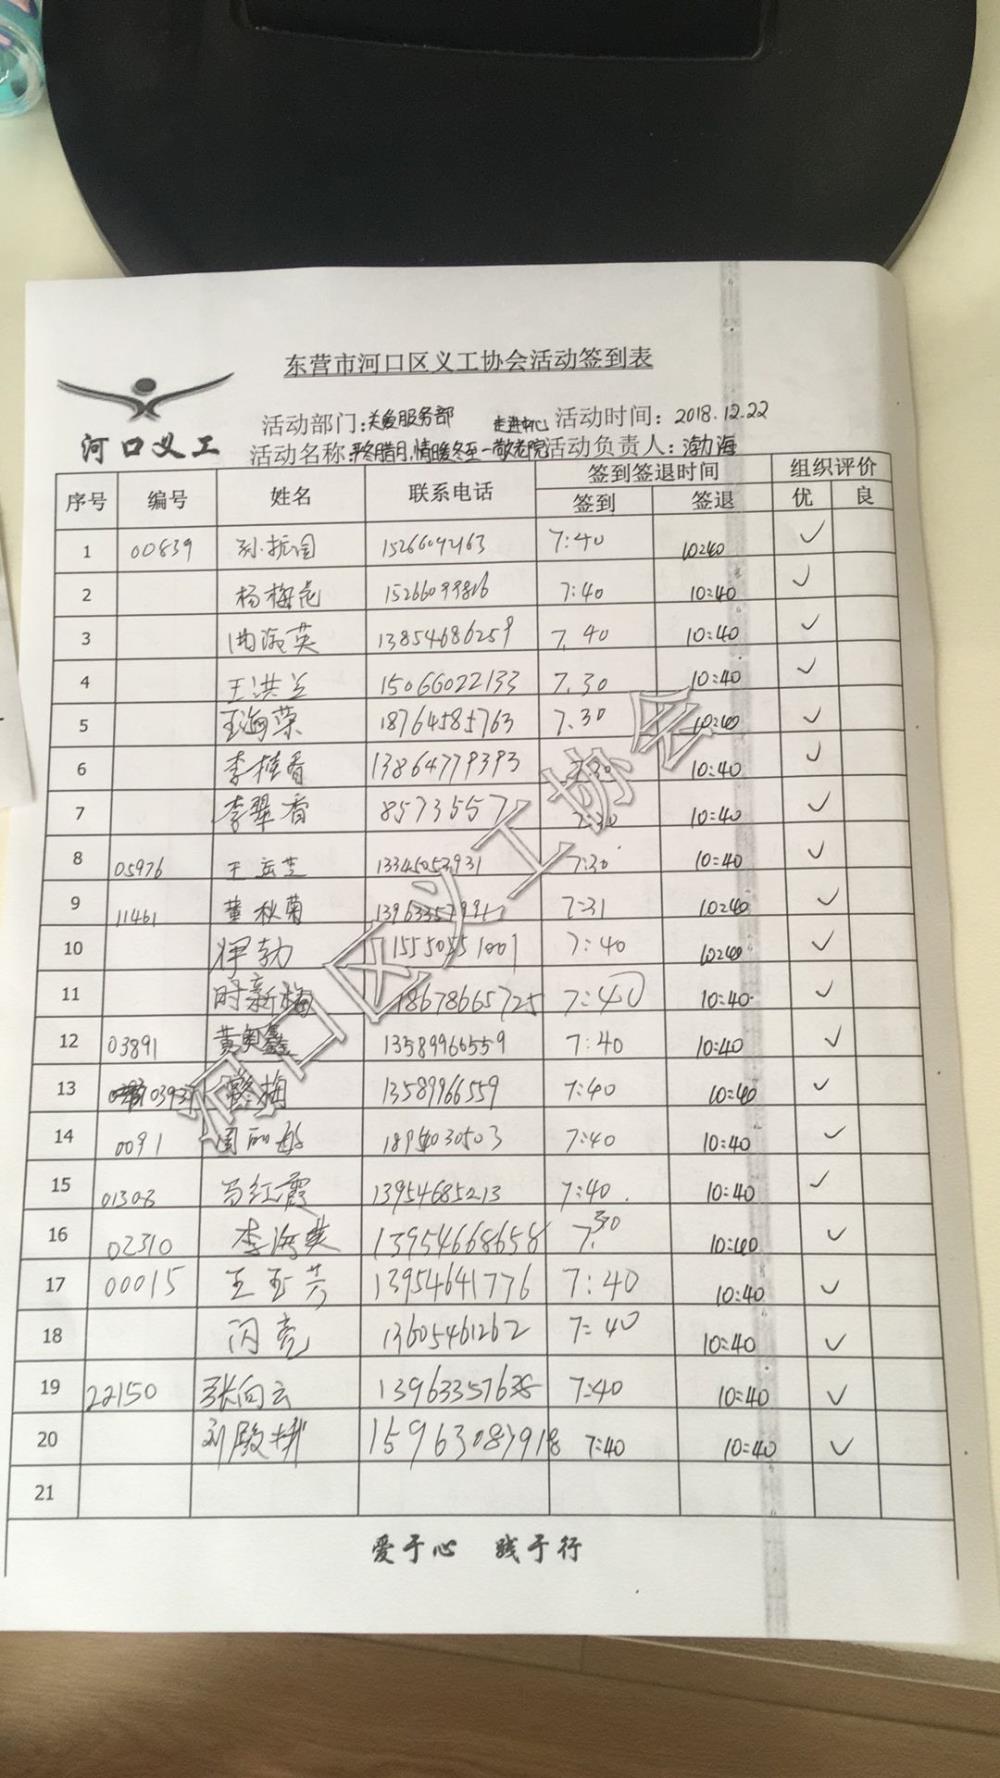 东营市河口区义工协会活动签到表
河口义工
活动部门：关爱服务部 走进中心 活动时间：2018.12.22
活动名称：寒冬腊月，情暖冬至—敬老院 活动负责人：渤海
序号 编号 姓名 联系电话 签到签退时间 组织评价
签到 签退 优 良
1 00839 孙振国 15266042163 7:40 10:40 ✓
2 杨梅花 15266099816 7:40 10:40 ✓
3 曲海英 13854686259 7.40 10:40 ✓
4 王洪兰 15066022133 7.30 10:40 ✓
5 王海荣 18764585763 7.30 10:40 ✓
6 李桂香 13864779393 7:30 10:40 ✓
7 李翠香 8573557 7:30 10:40 ✓
8 05976 王立芝 13345053931 7:30 10:40 ✓
9 11461 董秋菊 7:31 10:40 ✓
10 15550551009 7:40 10:40 ✓
11 时新梅 18678665725 7:40 10:40 ✓
12 03891 黄奥鑫 13589966559 7:40 10:40 ✓
13 梅 13589966559 7:40 10:40 ✓
14 0091 周丽 7:40 10:40 ✓
15 01303 马红霞 13954685213 7:40 10:40 ✓
16 02310 李海英 13954668658 7.30 10:40 ✓
17 00015 王玉芳 13954641776 7:40 10:40 ✓
18 闪亮 13605461262 7:40 10:40 ✓
19 22150 张向云 1396335763 7:40 10:40 ✓
20 刘殿娥 15963087918 7:40 10:40 ✓
21
河口区义工协会
爱于心 践于行